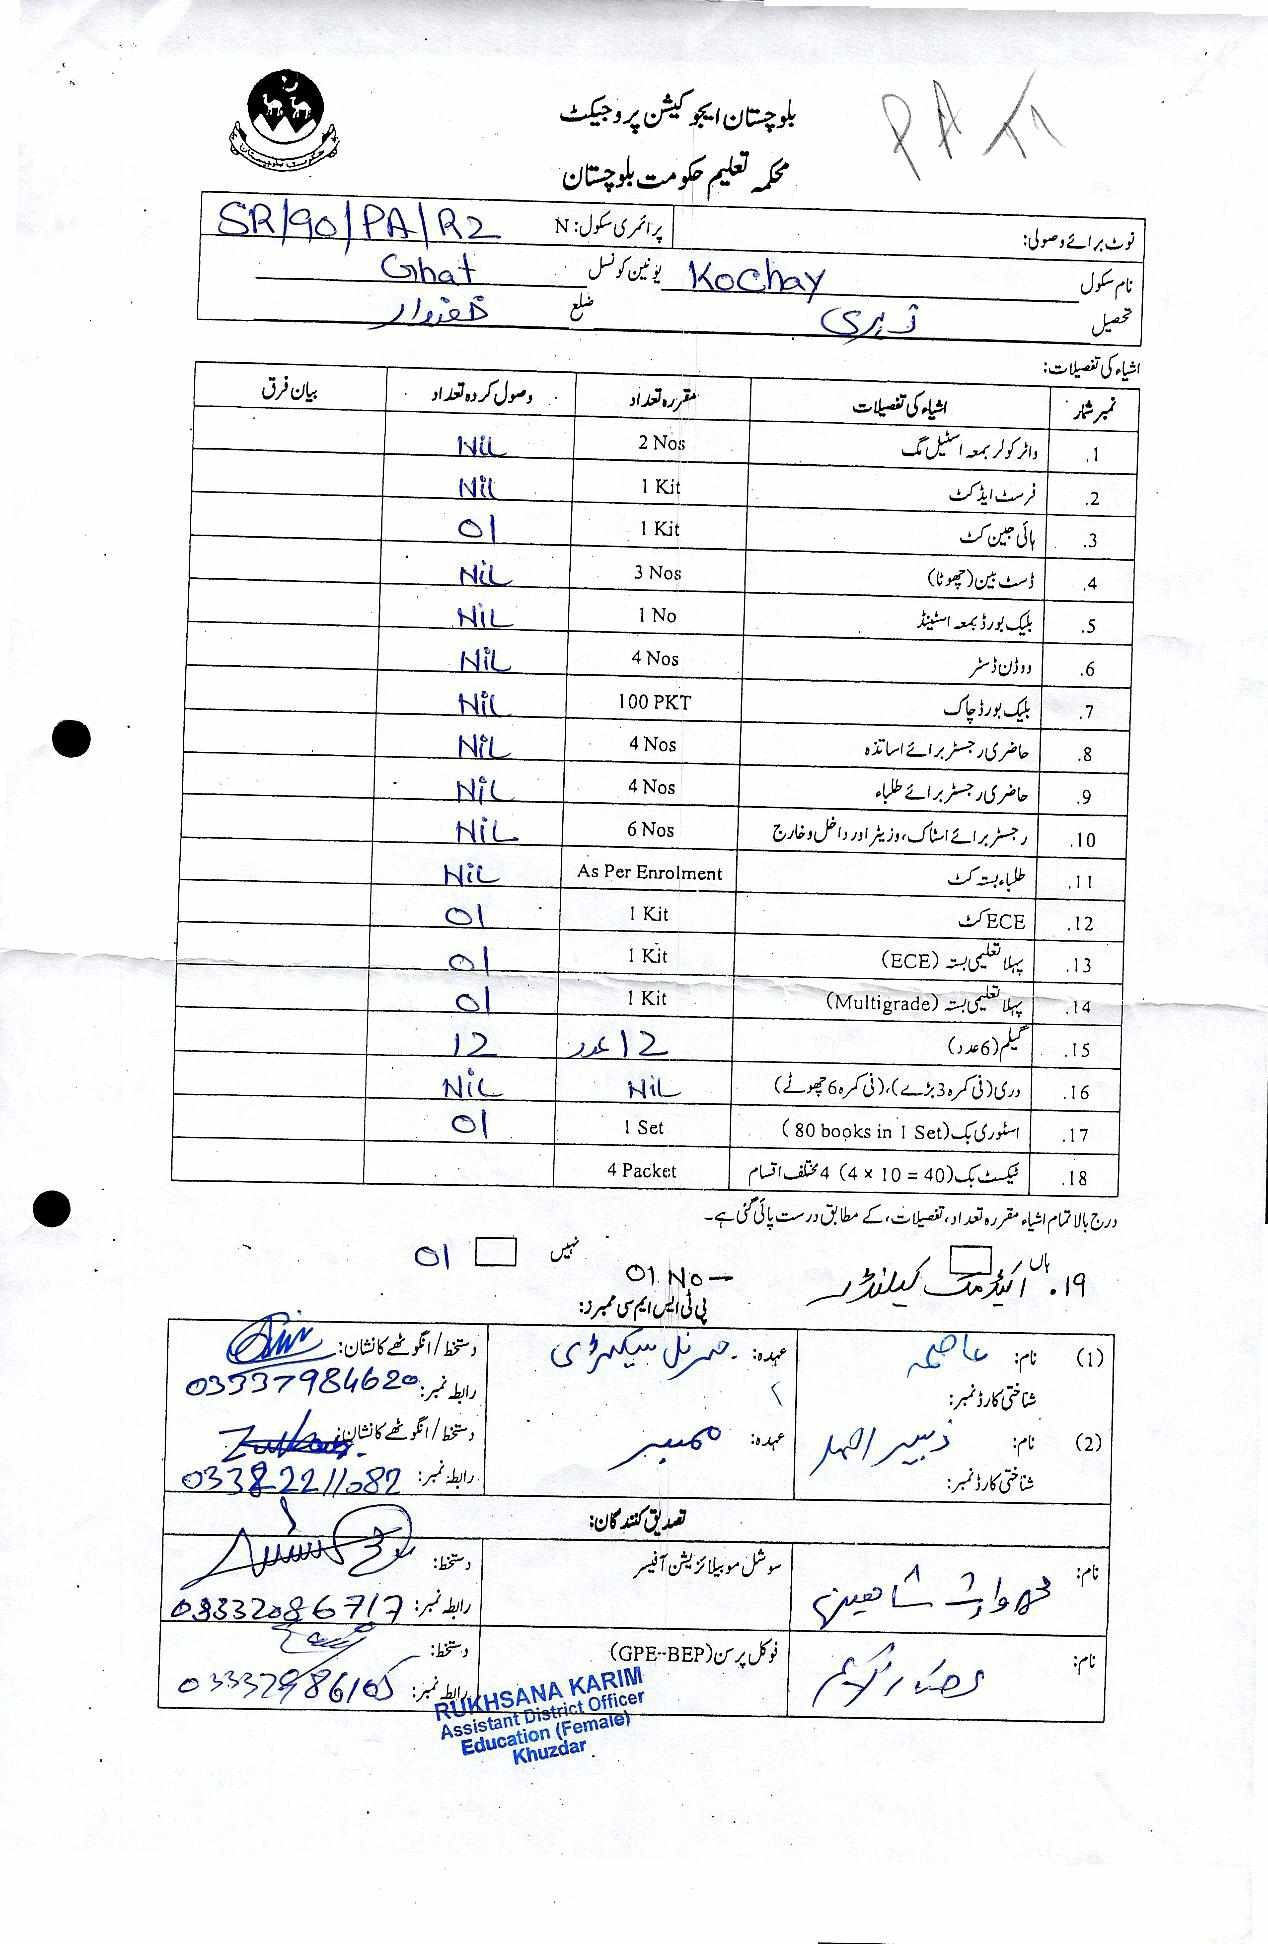 PA
بلوچستان ایجوکیشن پروجیکٹ
محکمہ تعلیم حکومت بلوچستان
نوٹ برائے وصولی: پرائمری سکول: N SR/90/PA/R2
نام سکول Kochay یونین کونسل Ghat
تحصیل زہری ضلع خضدار
اشیاء کی تفصیلات:
نمبر شمار اشیاء کی تفصیلات مقررہ تعداد وصول کردہ تعداد بیان فرق
1. واٹر کولر بمعہ اسٹیل مگ 2 Nos Nil
2. فرسٹ ایڈ کٹ 1 Kit Nil
3. ہائی جین کٹ 1 Kit 01
4. ڈسٹ بین (چھوٹا) 3 Nos Nil
5. بلیک بورڈ بمعہ اسٹینڈ 1 No Nil
6. ووڈن ڈسٹر 4 Nos Nil
7. بلیک بورڈ چاک 100 PKT Nil
8. حاضری رجسٹر برائے اساتذہ 4 Nos Nil
9. حاضری رجسٹر برائے طلباء 4 Nos Nil
10. رجسٹر برائے اسٹاک، وزیٹر اور داخل و خارج 6 Nos Nil
11. طلباء بستہ کٹ As Per Enrolment Nil
12. ECE کٹ 1 Kit 01
13. پہلا تعلیمی بستہ (ECE) 1 Kit 01
14. پہلا تعلیمی بستہ (Multigrade) 1 Kit 01
15. گیم (6 عدد) 12 عدد 12
16. دری (فی کمرہ 3 بڑے)، (فی کمرہ 6 چھوٹے) Nil Nil
17. اسٹوری بک (80 books in 1 Set) 1 Set 01
18. ٹیکسٹ بک (4 x 10 = 40) 4 مختلف اقسام 4 Packet
درج بالا تمام اشیاء مقررہ تعداد، تفصیلات، کے مطابق درست پائی گئی ہے۔
ہاں نہیں 01
19. اکیڈمک کیلنڈر 01 No
پی ٹی ایس ایم سی ممبرز:
(1) نام: عاصمہ عہدہ: جنرل سیکرٹری دستخط/انگوٹھے کا نشان:
شناختی کارڈ نمبر: رابطہ نمبر: 03337984620
(2) نام: زبیر احمد عہدہ: ممبر دستخط/انگوٹھے کا نشان:
شناختی کارڈ نمبر: رابطہ نمبر: 03382211082
تصدیق کنندگان:
نام: سوشل موبیلائزیشن آفیسر دستخط:
رابطہ نمبر: 03332086717
نام: فوکل پرسن (GPE-BEP) دستخط:
رابطہ نمبر: 03337986105
RUKHSANA KARIM
Assistant District Officer
Education (Female)
Khuzdar